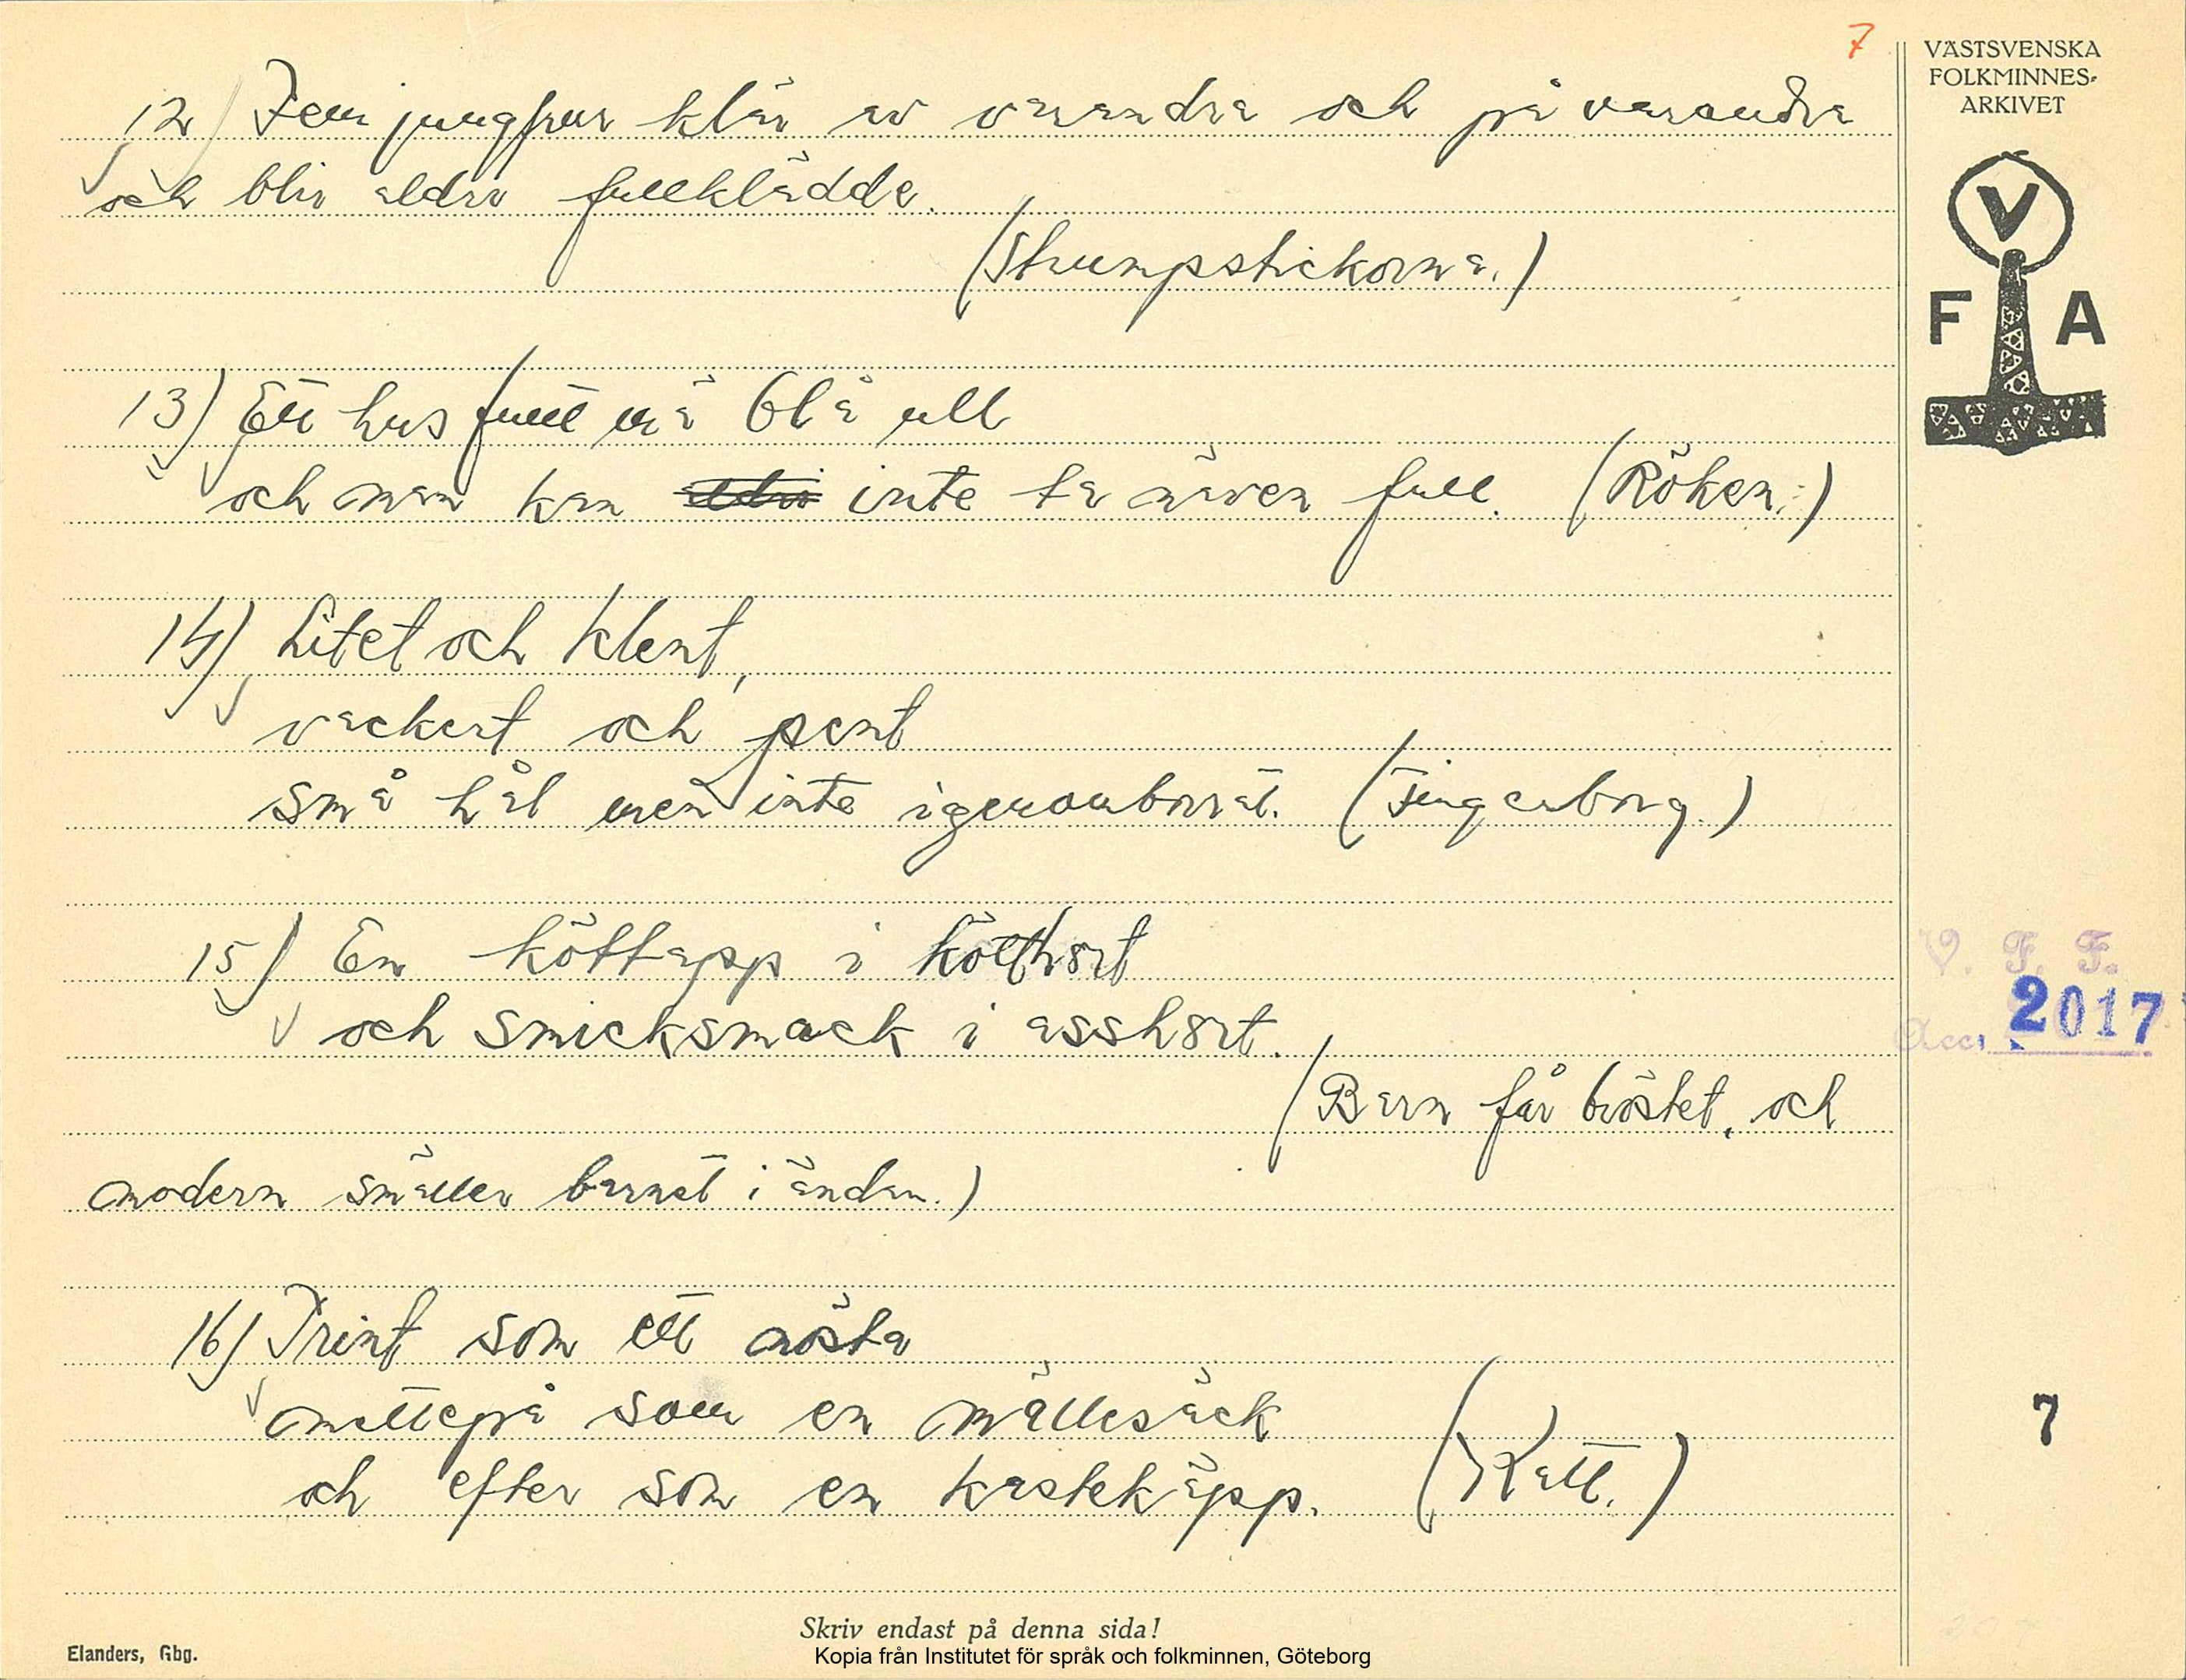 7
VÄSTSVENSKA
FOLKMINNES-
ARKIVET
V
F A
12) Fem jungfrur klär av varandra och på varandra
och blir aldri fullklädda.
(Strumpstickorna.)
13) Ett hus fullt mä blå ull
och man kan aldri inte ta näven full. (Röken.)
14) Litet och klent,
vackert och pent
små hål men inte igenomborrat. (Fingerborg.)
15) En köttapp i kötthort
och smicksmack i asshort.
(Barn får bröstet, och
modern smäller barnet i ändan.)
V. F. F.
Acc. 2017
16) Trint som ett nösta
mettepå som en mällesäck
och efter som en kastekäpp. (Katt.)
7
Skriv endast på denna sida!
Elanders, Gbg.
Kopia från Institutet för språk och folkminnen, Göteborg